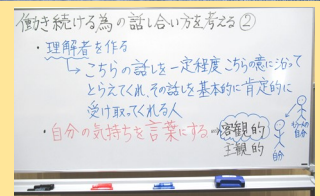 働き続ける為の話し合い方を考える②
・理解者を作る
→こちらの話しを一定程度こちらの意に沿って
とらえてくれ その話しを基本的に肯定的に
受け取ってくれる人
・自分の気持ちを言葉にする⇒客観的
主観的
もう一人の自分
自分